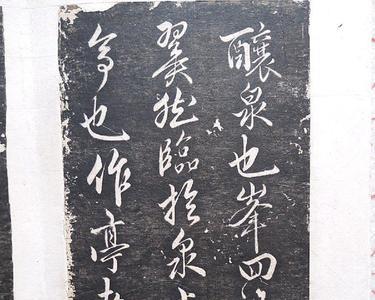 釀泉也峯四
翼然臨於泉上
亭也作亭者